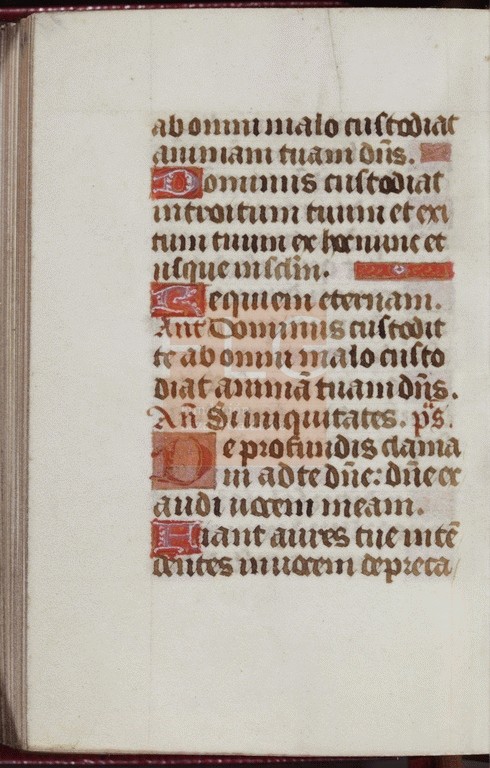 ab omni malo custodiat
animam tuam dn̄s.
Dominus custodiat
introitum tuum et exi
tum tuum ex hoc nunc et
usque in sc̄lm.
Requiem eternam.
Ant Dominus custodit
te ab omni malo custo
diat animā tuam dn̄s.
An̄ Si iniquitates. p̄s.
De profundis clama
ui ad te dn̄e: dn̄e ex
audi uocem meam.
Fiant aures tue intē
dentes in uocem depreca/